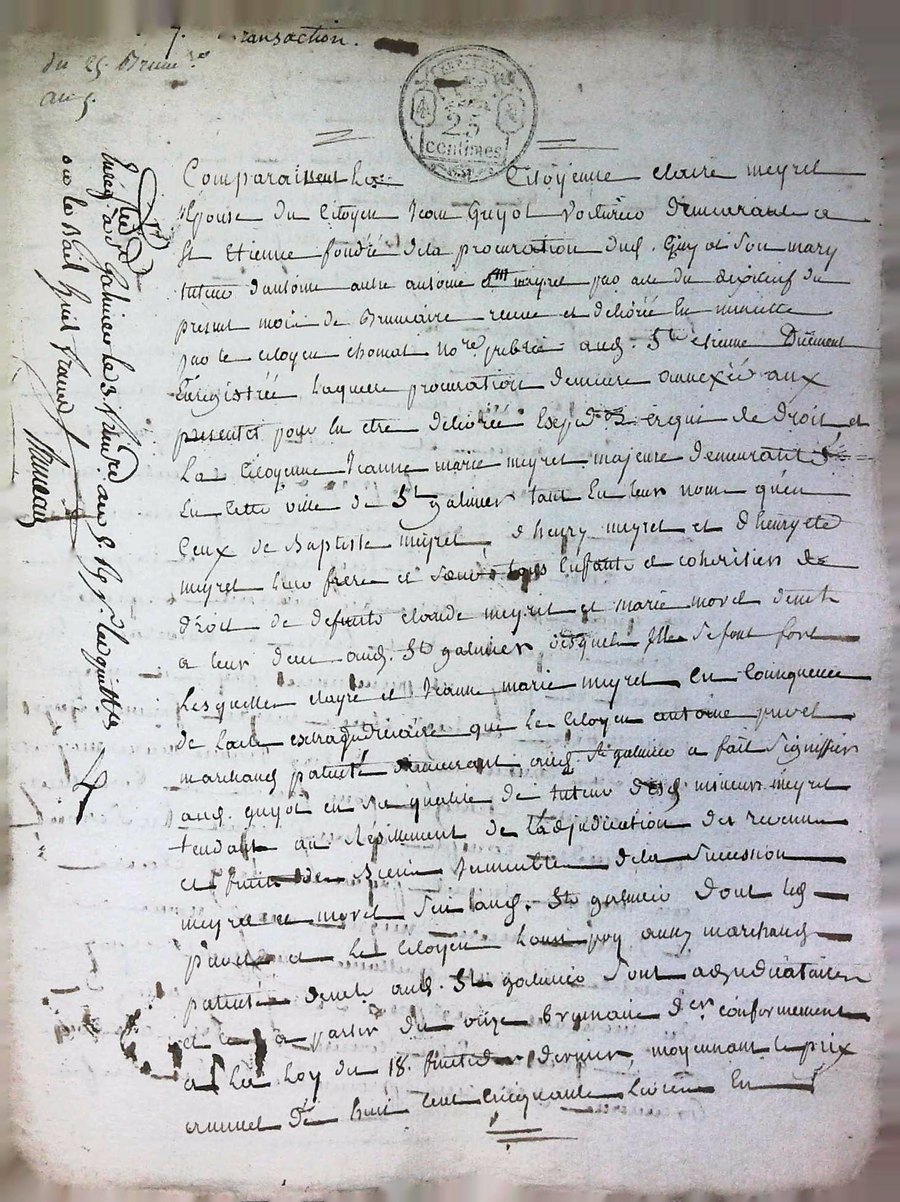 7. transaction.
du 25 Brum.re
an 5.
25
centimes
Comparaissent La Citoyenne claire meyret
Epouse du Citoyen Jean Guyot Voiturier demeurant a
St Etienne fondée de la procuration dud. Guyot son mary
tuteur d'antoine autre antoine meyret par acte du dixneuf du
present mois de Brumaire reçue et délivrée En minutte
par le citoyen chomat no.re public aud. St etienne Duement
Enregistrée laquelle procuration demeure annexée aux
presentes pour En etre délivrée Exped.on requi de droit et
La Citoyenne Jeanne marie meyret majeure demeurant
En Cette ville de St galmier tant En leur nom qu'en
Ceux de Baptiste meyret, d'henry meyret et d'henryete
meyret leur frère et soeur tous Enfants et coheritiers de
droit de defunts claude meyret et marie morel
a leur aud. St galmier desquels Elle se font fort
Lesquelles claire et Jeanne marie meyret en Consequence
de l'acte extrajudiciaire que le Citoyen antoine privet
marchand patenté demeurant aud. St galmier a fait Signiffier
aud. guyot en sa qualité de tuteur desd. mineurs meyret
tendant au Resiliement de l'adjudication des revenus
et fruits des Biens Immeubles de la Succession
meyret et morel Sur laud. St galmier Dont led.
privet et Le Citoyen Louis marchand
patenté aud. St galmier Sont adjudicataires
et ce a partir du onze brumaire d.er conformement
a La Loy du 18. fructidor dernier, moyennant le prix
annuel De huit Cent Cinquante Livres En
Enreg. a St Galmier le 3 an 5.